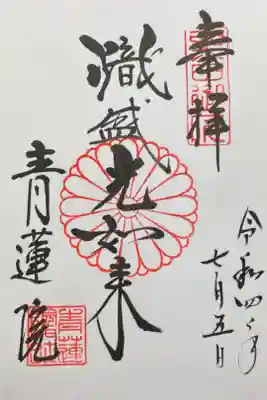 奉拝
熾盛光如来
青蓮院
令和四年
七月五日